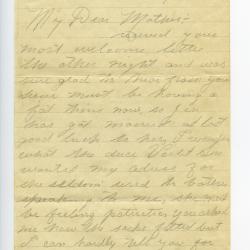 My Dear Mother:-
received your
most welcome letter
the other night and was
sure glad to hear from you
must be having a
hot time now so
has got married at last
good luck to her, I wonder
what the duce
wanted my adress for
she seldom used to bother
speak to me,
be feeling patriotic you asked
me how the
I can hardly tell you for